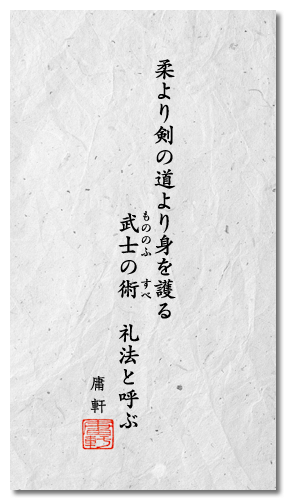 柔より剣の道より身を護る
武士の術　礼法と呼ぶ
もののふ
すべ
庸軒